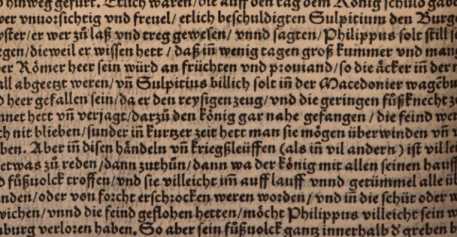 hinweg gefürt. Etlich waren/die auff den tag dem König schuld gabe
er vnuorsichtig vnd freuel/etlich beschuldigten Sulpitium den Burge
yster/er wer zů laß vnd treg gewesen/vnnd sagten/Philippus solt still s
egen/dieweil er wissen hett/daß in wenig tagen groß kummer vnd man
er Römer heer sein würd an früchten vnd prouiand/so die äcker in der
all abgeetzt weren/vñ Sulpitius billich solt in der Macedonier wagēbu
d heer gefallen sein/da er den reysigen zeug/vnd die geringen fůßknecht z
nnet hett vñ verjagt/darzů den König gar nahe gefangen/die feind we
ch nit blieben/sunder in kurtzer zeit hett man sie mögen überwinden vñ v
ben. Aber in disen händeln vñ kriegßleüffen (als in vil andern) ist vil lei
etwas zů reden/dann zuthůn/dann wa der König mit allen seinen hauff
d fůßuolck troffen/vnd sie villeicht im auff lauff vnnd getümmel alle ü
nden/oder von forcht erschrocken weren worden/vnd in die schüt oder w
wichen/vnnd die feind geflohen hetten/möcht Philippus villeicht sein w
nburg verlorn haben. So aber sein fůßuolck gantz innerhalb d greben b